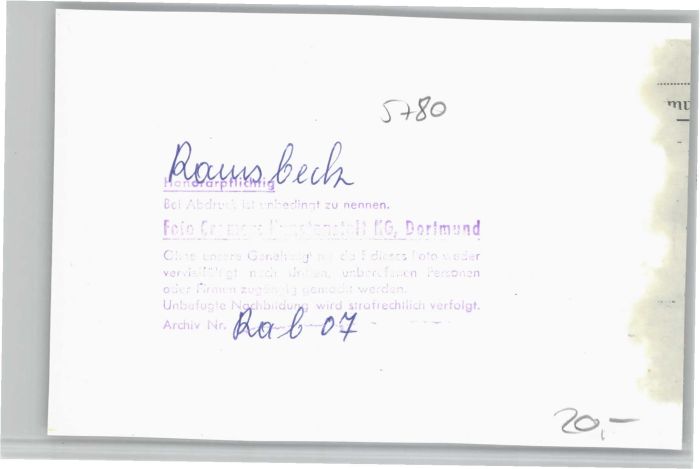 5780
mu
Ramsbeck
Honorarpflichtig
Bei Abdruck ist unbedingt zu nennen.
Foto Cramers Kunstanstalt KG, Dortmund
Ohne unsere Genehmigung darf dieses Foto weder
vervielfältigt noch dritten, unberufenen Personen
oder Firmen zugängig gemacht werden.
Unbefugte Nachbildung wird strafrechtlich verfolgt.
Archiv Nr. Rab 07
20,-